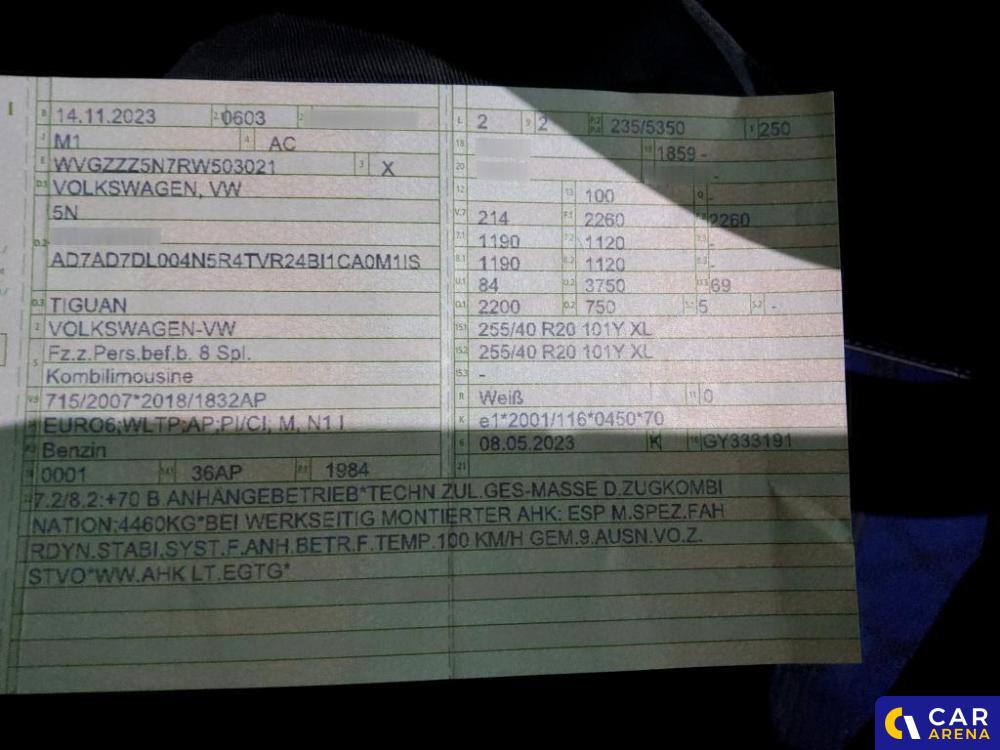 B 14.11.2023 2.1 0603 2.2
J M1 4 AC
E WVGZZZ5N7RW503021 3 X
D.1 VOLKSWAGEN, VW
5N
D.2
AD7AD7DL004N5R4TVR24BI1CA0M1IS
D.3 TIGUAN
2 VOLKSWAGEN-VW
5 Fz.z.Pers.bef.b. 8 Spl.
Kombilimousine
V.9 715/2007*2018/1832AP
EURO6;WLTP;AP;PI/CI; M, N1 I
P.3 Benzin
10 0001 14.1 36AP P.1 1984
L 2 9 2 P.2 P.4 235/5350 T 250
18 19 1859 -
20 -
12 13 100 Q -
V.7 214 F.1 2260 F.2 2260
7.1 1190 7.2 1120 7.3 -
8.1 1190 8.2 1120 8.3 -
U.1 84 U.2 3750 U.3 69
O.1 2200 O.2 750 S.1 5 S.2 -
15.1 255/40 R20 101Y XL
15.2 255/40 R20 101Y XL
15.3 -
R Weiß 11 0
K e1*2001/116*0450*70
6 08.05.2023 K 16 GY333191
21
22 7.2/8.2:+70 B.ANHÄNGEBETRIEB*TECHN ZUL.GES-MASSE D.ZUGKOMBI
NATION:4460KG*BEI WERKSEITIG MONTIERTER AHK: ESP M.SPEZ.FAH
RDYN.STABI.SYST.F.ANH.BETR.F.TEMP.100 KM/H GEM.9.AUSN.VO.Z.
STVO*WW.AHK LT.EGTG*
CAR
ARENA